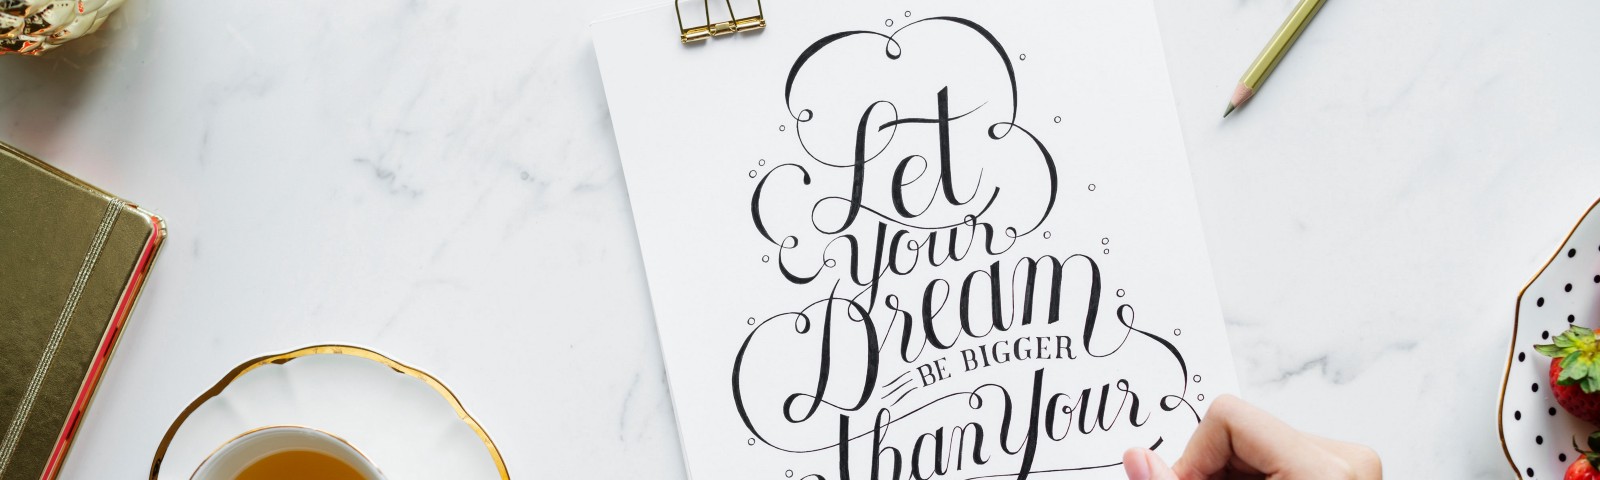 Let
Your
Dream
BE BIGGER
than Your